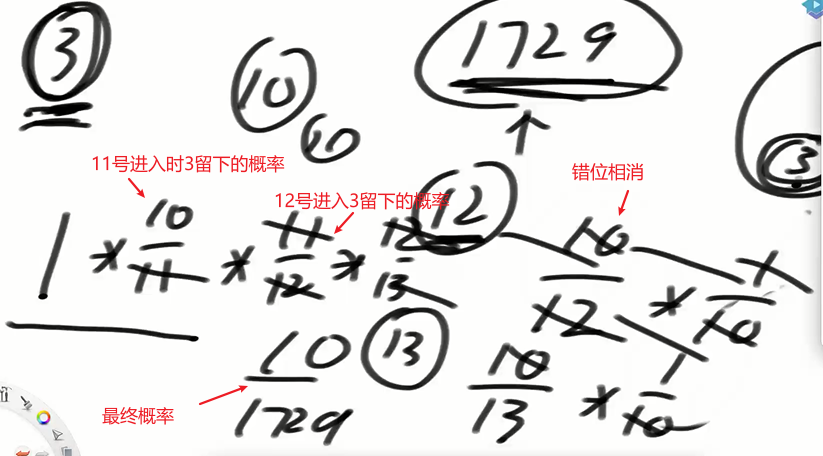 3
10
10
1729
3
11号进入时3留下的概率
12号进入3留下的概率
错位相消
12
1 × 10/11 × 11/12 × 12/13
10/12 × 1/10
10/1729
13
10/13 × 1/10
最终概率